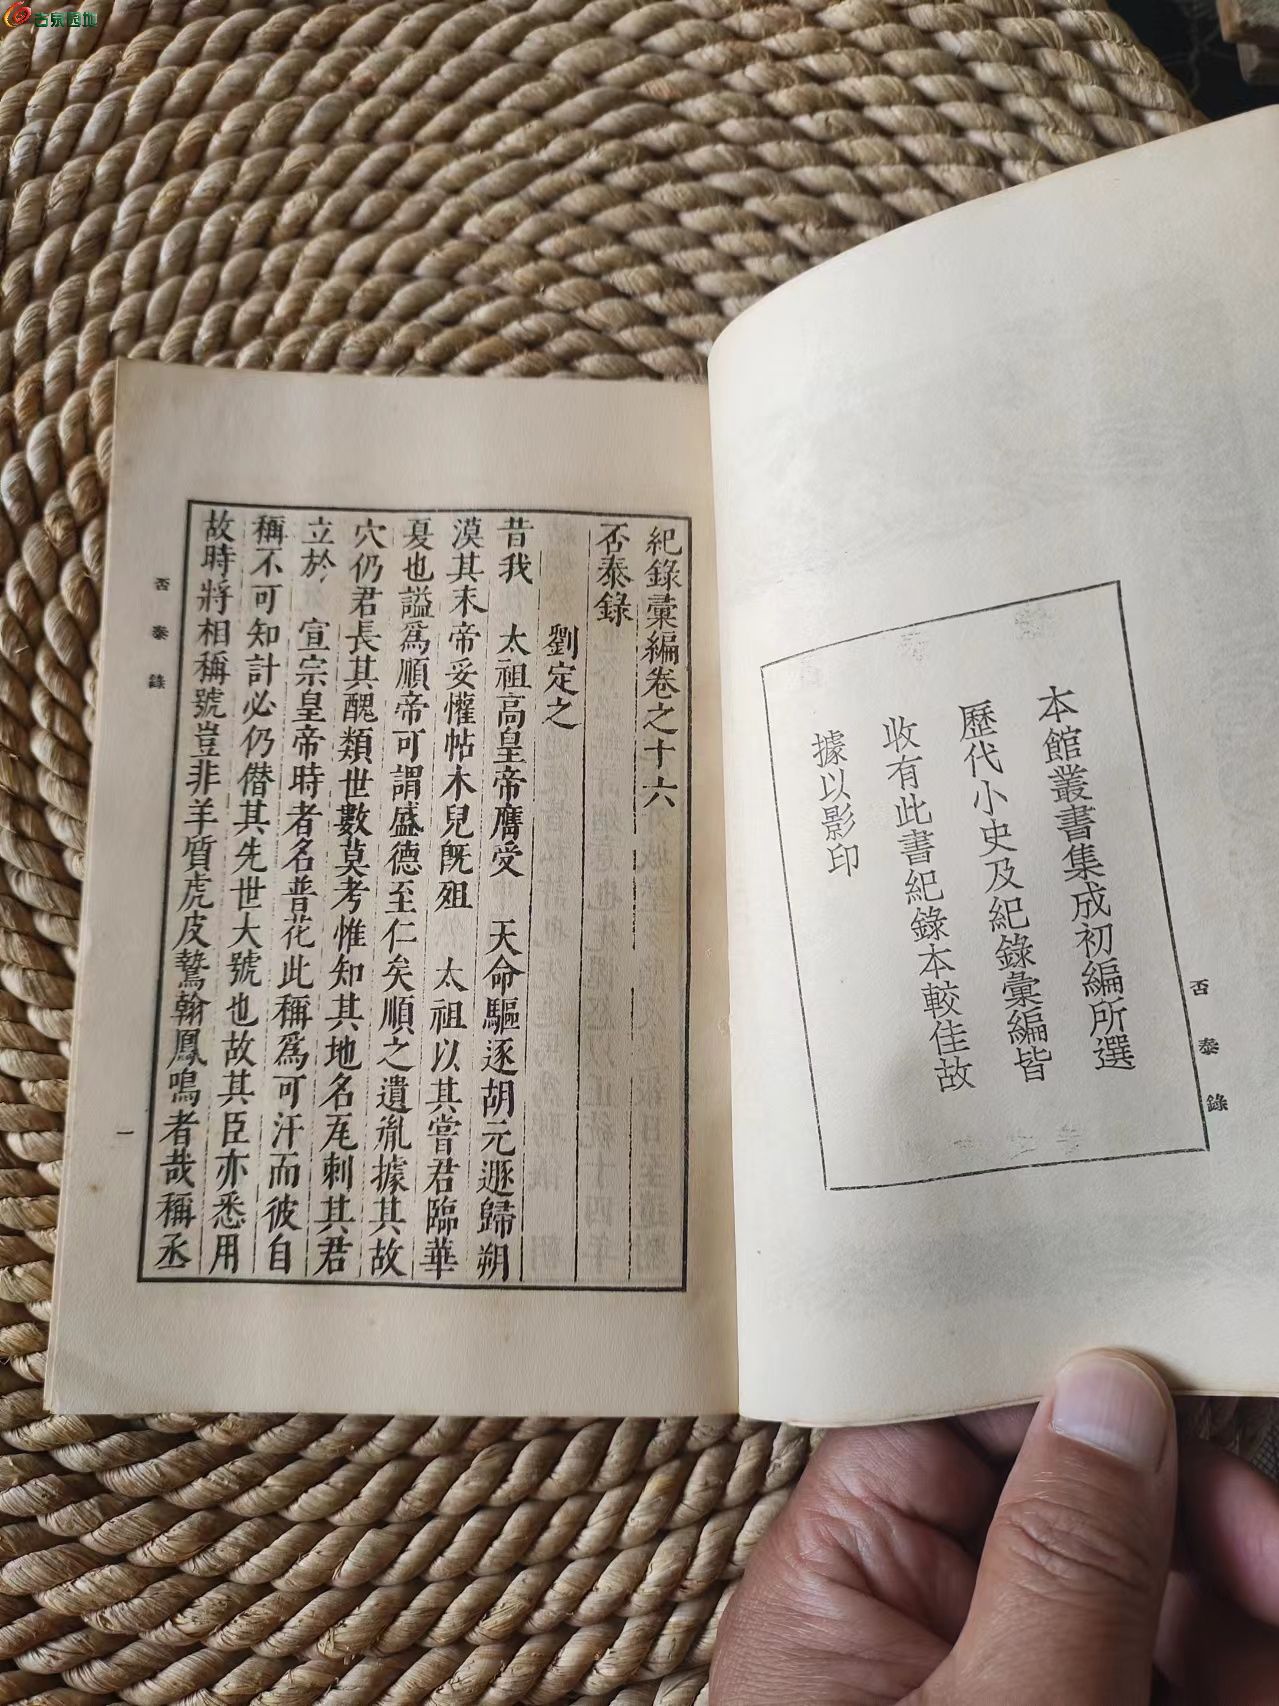 古泉园地
否泰錄
本館叢書集成初編所選
歷代小史及紀錄彙編皆
收有此書紀錄本較佳故
據以影印
紀錄彙編卷之十六
否泰錄
劉定之
昔我　太祖高皇帝膺受　天命驅逐胡元遯歸朔
漠其末帝妥懽帖木兒旣殂　太祖以其嘗君臨華
夏也謚爲順帝可謂盛德至仁矣順之遺胤據其故
穴仍君長其醜類世數莫考惟知其地名瓦剌其君
立於　宣宗皇帝時者名普花此稱爲可汗而彼自
稱不可知計必仍僭其先世大號也故其臣亦悉用
故時將相稱號豈非羊質虎皮鷙翰鳳鳴者哉稱丞
否泰錄
一